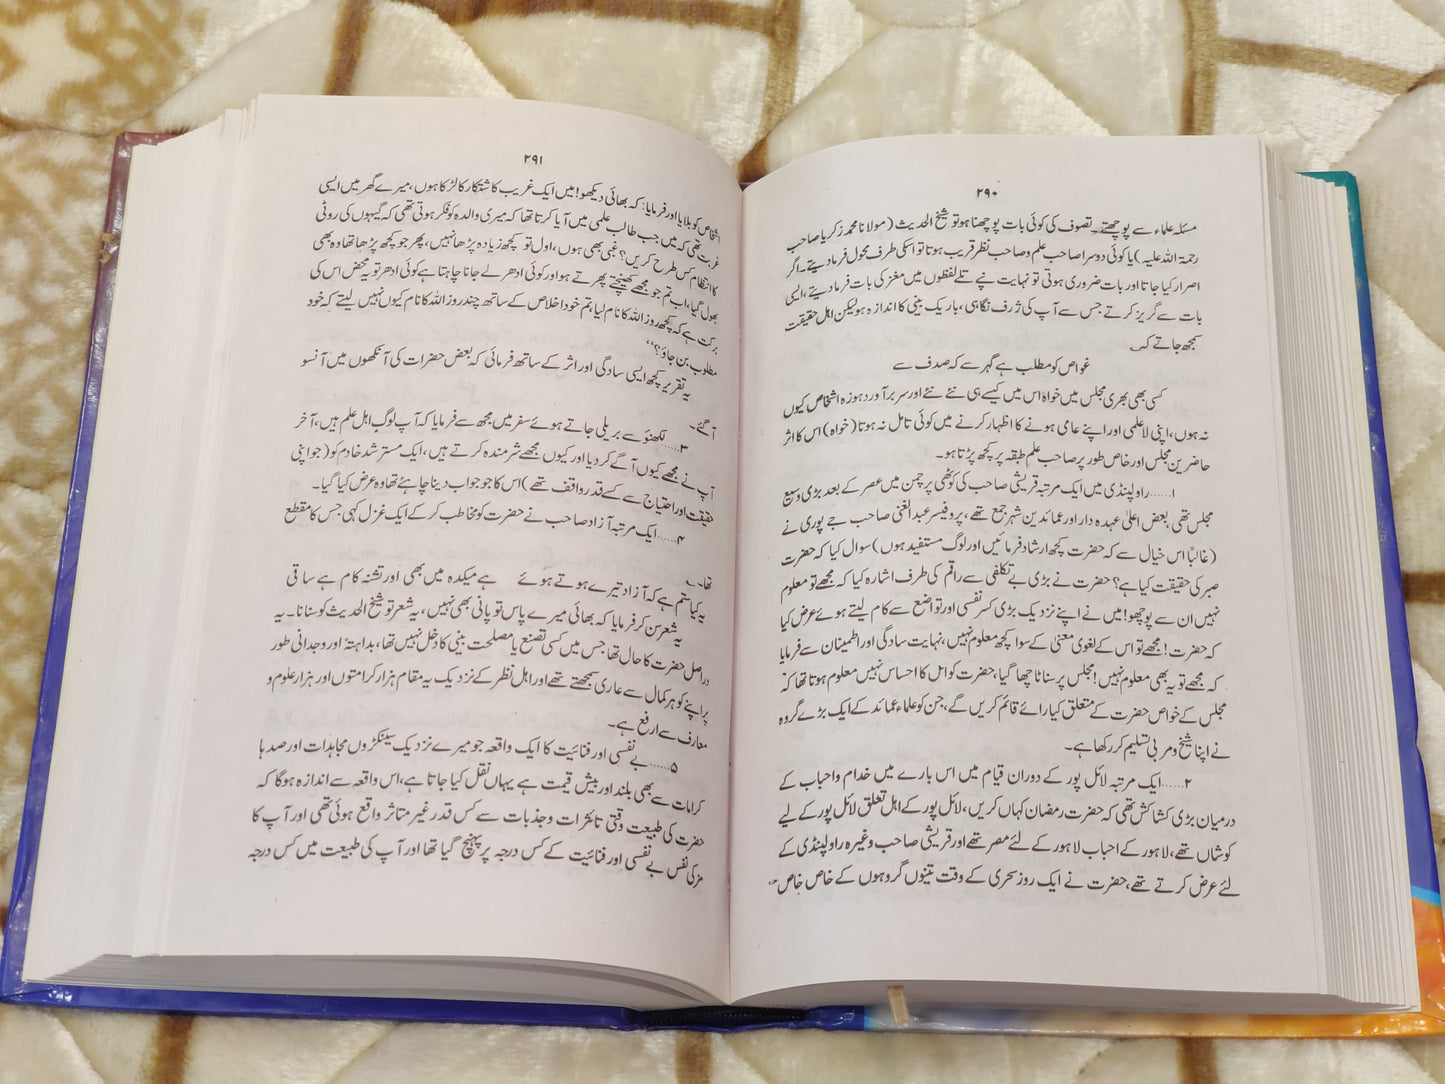 ۲۹۰
مسئلہ علماء سے پوچھتے۔ تصوف کی کوئی بات پوچھنا ہو تو شیخ الحدیث (مولانا محمد زکریا صاحب
رحمۃ اللہ علیہ) یا کوئی دوسرا صاحب علم و صاحب نظر قریب ہوتا تو اسکی طرف محول فرمادیتے۔ اگر
اصرار کیا جاتا اور بات ضروری ہوتی تو نہایت نپے تلے لفظوں میں مغز کی بات فرمادیتے، ایسی
بات سے گریز کرتے جس سے آپ کی ژرف نگاہی، باریک بینی کا اندازہ ہو لیکن اہل حقیقت
سمجھ جاتے کہ
غواص کو مطلب ہے گہر سے کہ صدف سے
کسی بھی بھری مجلس میں خواہ اس میں کیسے ہی نئے نئے اور سربرآوردہ وزہ اشخاص کیوں
نہ ہوں، اپنی لاعلمی اور اپنے عامی ہونے کا اظہار کرنے میں کوئی تامل نہ ہوتا (خواہ) اس کا اثر
حاضرین مجلس اور خاص طور پر صاحب علم طبقہ پر کچھ پڑتا ہو۔
۱......راولپنڈی میں ایک مرتبہ قریشی صاحب کی کوٹھی پر چمن میں عصر کے بعد بڑی وسیع
مجلس تھی بعض اعلیٰ عہدہ دار اور عمائدین شہر جمع تھے، پروفیسر عبدالغنی صاحب جے پوری نے
(غالباً اس خیال سے کہ حضرت کچھ ارشاد فرمائیں اور لوگ مستفید ہوں) سوال کیا کہ حضرت
صبر کی حقیقت کیا ہے؟ حضرت نے بڑی بے تکلفی سے راقم کی طرف اشارہ کیا کہ مجھے تو معلوم
نہیں ان سے پوچھو! میں نے اپنے نزدیک بڑی کسر نفسی اور تواضع سے کام لیتے ہوئے عرض کیا
کہ حضرت! مجھے تو اس کے لغوی معنیٰ کے سوا کچھ معلوم نہیں، نہایت سادگی اور اطمینان سے فرمایا
کہ مجھے تو یہ بھی معلوم نہیں! مجلس پر سناٹا چھا گیا، حضرت کو اس کا احساس نہیں معلوم ہوتا تھا کہ
مجلس کے خواص حضرت کے متعلق کیا رائے قائم کریں گے، جن کو علماء عمائد کے ایک بڑے گروہ
نے اپنا شیخ و مربی تسلیم کر رکھا ہے۔
۲......ایک مرتبہ لائل پور کے دوران قیام میں اس بارے میں خدام و احباب کے
درمیان بڑی کشاکش تھی کہ حضرت رمضان کہاں کریں، لائل پور کے اہل تعلق لائل پور کے لیے
کوشاں تھے، لاہور کے احباب لاہور کے لئے مصر تھے اور قریشی صاحب وغیرہ راولپنڈی کے
لئے عرض کرتے تھے، حضرت نے ایک روز سحری کے وقت تینوں گروہوں کے خاص خاص
۲۹۱
اشخاص کو بلایا اور فرمایا: کہ بھائی دیکھو! میں ایک غریب کاشتکار کا لڑکا ہوں، میرے گھر میں ایسی
غربت تھی کہ میں جب طالب علمی میں آیا کرتا تھا کہ میری والدہ کو فکر ہوتی تھی کہ گیہوں کی روٹی
کا انتظام کس طرح کریں؟ غبی بھی ہوں، اول تو کچھ زیادہ پڑھا نہیں، پھر جو کچھ پڑھا تھا وہ بھی
بھول گیا، اب تم جو مجھے کھینچتے پھرتے ہو اور کوئی ادھر لے جانا چاہتا ہے کوئی ادھر تو یہ محض اس کی
برکت ہے کہ کچھ روز اللہ کا نام لیا، تم خود اخلاص کے ساتھ چند روز اللہ کا نام کیوں نہیں لیتے کہ خود
مطلوب بن جاؤ؟“
یہ تقریر کچھ ایسی سادگی اور اثر کے ساتھ فرمائی کہ بعض حضرات کی آنکھوں میں آنسو
آگئے۔
۳......لکھنؤ سے بریلی جاتے ہوئے سفر میں مجھ سے فرمایا کہ آپ لوگ اہل علم ہیں، آخر
آپ نے مجھے کیوں آگے کر دیا اور کیوں مجھے شرمندہ کرتے ہیں، ایک مسترشد خادم کو (جو اپنی
حقیقت اور احتیاج سے کسے قدر واقف تھے) اس کا جو جواب دینا چاہئے تھا وہ عرض کیا گیا۔
۴......ایک مرتبہ آزاد صاحب نے حضرت کو مخاطب کر کے ایک غزل کہی جس کا مقطع
تھا۔
یہ کیا ستم ہے کہ آزاد تیرے ہوتے ہوئے ہے میکدہ میں بھی اور تشنہ کام ہے ساقی
یہ شعر سن کر فرمایا کہ بھائی میرے پاس تو پانی بھی نہیں، یہ شعر تو شیخ الحدیث کو سنانا۔ یہ
دراصل حضرت کا حال تھا جس میں کسی تصنع یا مصلحت بینی کا دخل نہیں تھا، بداہتہً اور وجدانی طور
پر اپنے کو ہر کمال سے عاری سمجھتے تھے اور اہل نظر کے نزدیک یہ مقام ہزار کرامتوں اور ہزار علوم و
معارف سے ارفع ہے۔
۵......بے نفسی اور فنائیت کا ایک واقعہ جو میرے نزدیک سینکڑوں مجاہدات اور صدہا
کرامات سے بھی بلند اور بیش قیمت ہے یہاں نقل کیا جاتا ہے، اس واقعہ سے اندازہ ہوگا کہ
حضرت کی طبیعت وقتی تاثرات و جذبات سے کس قدر غیر متاثر واقع ہوئی تھی اور آپ کا
مزکی نفس بے نفسی اور فنائیت کے کس درجہ پر پہنچ گیا تھا اور آپ کی طبیعت میں کس درجہ